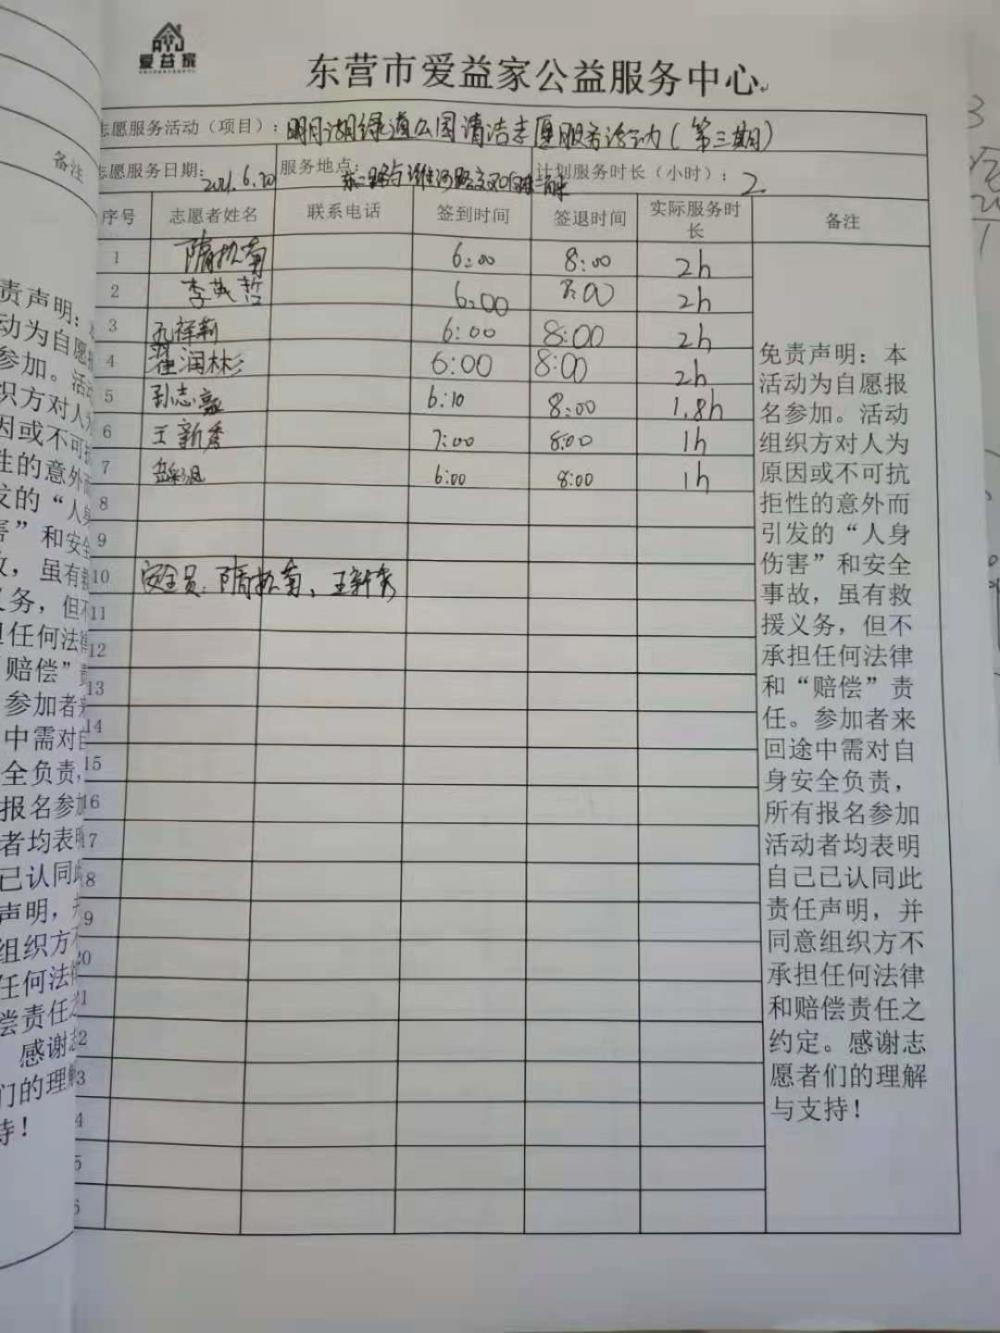 爱益家
东营市爱益家公益服务中心
志愿服务活动（项目）：明月湖绿道公园清洁志愿服务活动（第三期）
志愿服务日期：2021.6.20 服务地点： 计划服务时长（小时）：2
序号 志愿者姓名 联系电话 签到时间 签退时间 实际服务时长 备注
1 隋松南 6:00 8:00 2h
2 李英哲 6:00 8:00 2h
3 孔祥莉 6:00 8:00 2h
4 翟润彬 6:00 8:00 2h
5 孙志毅 6:10 8:00 1.8h
6 王新秀 7:00 8:00 1h
7 6:00 8:00 1h
8
9
10 安全员：隋松南、王新秀
11
12
13
14
15
16
17
18
19
20
21
22
23
24
25
26
免责声明：本
活动为自愿报
名参加。活动
组织方对人为
原因或不可抗
拒性的意外而
引发的“人身
伤害”和安全
事故，虽有救
援义务，但不
承担任何法律
和“赔偿”责
任。参加者来
回途中需对自
身安全负责，
所有报名参加
活动者均表明
自己已认同此
责任声明，并
同意组织方不
承担任何法律
和赔偿责任之
约定。感谢志
愿者们的理解
与支持！
备注
责声明：
动为自愿
参加。活
织方对人
因或不可
性的意外
发的“人
害”和安全
故，虽有
义务，但不
担任何法
“赔偿”
参加者来
中需对自
全负责，
报名参加
者均表
己认同此
声明，
组织方
任何法
偿责任之
感谢志
们的理
持！